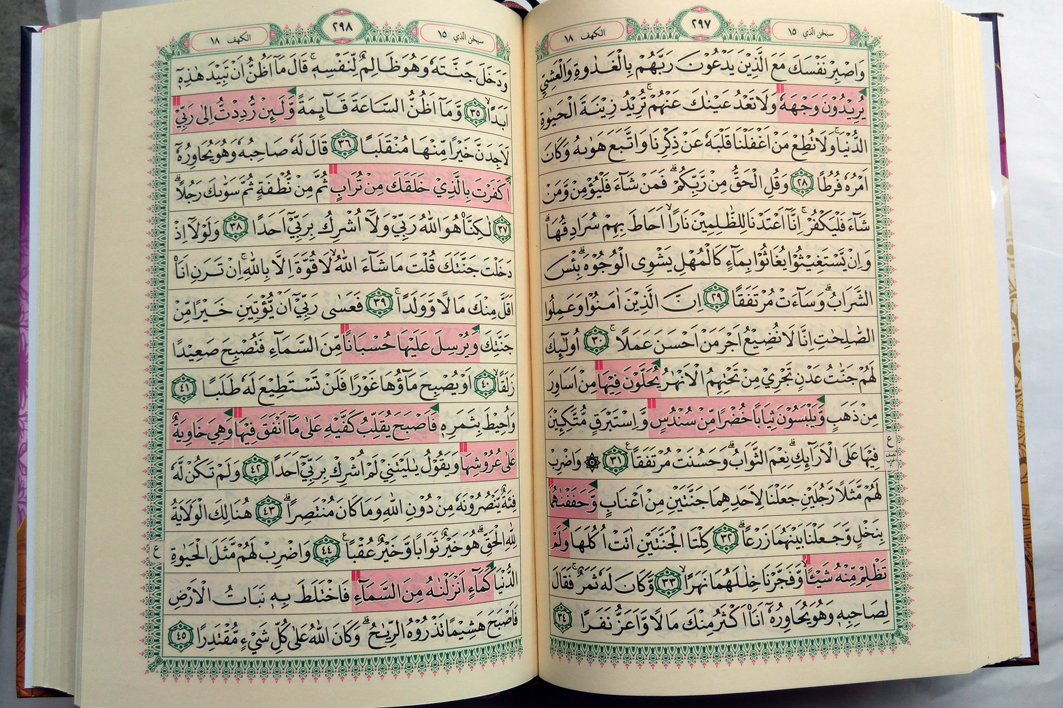 سبحن الذي ١٥
٢٩٧
الكهف ١٨
وَاصْبِرْ نَفْسَكَ مَعَ الَّذِيْنَ يَدْعُوْنَ رَبَّهُمْ بِالْغَدٰوةِ وَالْعَشِيِّ
يُرِيْدُوْنَ وَجْهَهٗ وَلَا تَعْدُ عَيْنٰكَ عَنْهُمْۚ تُرِيْدُ زِيْنَةَ الْحَيٰوةِ
الدُّنْيَاۚ وَلَا تُطِعْ مَنْ اَغْفَلْنَا قَلْبَهٗ عَنْ ذِكْرِنَا وَاتَّبَعَ هَوٰىهُ وَكَانَ
اَمْرُهٗ فُرُطًا ٢٨ وَقُلِ الْحَقُّ مِنْ رَّبِّكُمْۗ فَمَنْ شَاۤءَ فَلْيُؤْمِنْ وَّمَنْ
شَاۤءَ فَلْيَكْفُرْۚ اِنَّآ اَعْتَدْنَا لِلظّٰلِمِيْنَ نَارًاۙ اَحَاطَ بِهِمْ سُرَادِقُهَاۗ
وَاِنْ يَّسْتَغِيْثُوْا يُغَاثُوْا بِمَاۤءٍ كَالْمُهْلِ يَشْوِى الْوُجُوْهَۗ بِئْسَ
الشَّرَابُۗ وَسَاۤءَتْ مُرْتَفَقًا ٢٩ اِنَّ الَّذِيْنَ اٰمَنُوْا وَعَمِلُوا
الصّٰلِحٰتِ اِنَّا لَا نُضِيْعُ اَجْرَ مَنْ اَحْسَنَ عَمَلًاۚ ٣٠ اُولٰۤىِٕكَ
لَهُمْ جَنّٰتُ عَدْنٍ تَجْرِيْ مِنْ تَحْتِهِمُ الْاَنْهٰرُ يُحَلَّوْنَ فِيْهَا مِنْ اَسَاوِرَ
مِنْ ذَهَبٍ وَّيَلْبَسُوْنَ ثِيَابًا خُضْرًا مِّنْ سُنْدُسٍ وَّاِسْتَبْرَقٍ مُّتَّكِـِٕيْنَ
فِيْهَا عَلَى الْاَرَاۤىِٕكِۗ نِعْمَ الثَّوَابُۗ وَحَسُنَتْ مُرْتَفَقًا ࣖ ٣١ ۞ وَاضْرِبْ
لَهُمْ مَّثَلًا رَّجُلَيْنِ جَعَلْنَا لِاَحَدِهِمَا جَنَّتَيْنِ مِنْ اَعْنَابٍ وَّحَفَفْنٰهُمَا
بِنَخْلٍ وَّجَعَلْنَا بَيْنَهُمَا زَرْعًاۗ ٣٢ كِلْتَا الْجَنَّتَيْنِ اٰتَتْ اُكُلَهَا وَلَمْ
تَظْلِمْ مِّنْهُ شَيْـًٔاۙ وَّفَجَّرْنَا خِلٰلَهُمَا نَهَرًاۙ ٣٣ وَّكَانَ لَهٗ ثَمَرٌۚ فَقَالَ
لِصَاحِبِهٖ وَهُوَ يُحَاوِرُهٗٓ اَنَا۠ اَكْثَرُ مِنْكَ مَالًا وَّاَعَزُّ نَفَرًا ٣٤
ع
سبحن الذي ١٥
٢٩٨
الكهف ١٨
وَدَخَلَ جَنَّتَهٗ وَهُوَ ظَالِمٌ لِّنَفْسِهٖۚ قَالَ مَآ اَظُنُّ اَنْ تَبِيْدَ هٰذِهٖٓ
اَبَدًاۙ ٣٥ وَّمَآ اَظُنُّ السَّاعَةَ قَاۤىِٕمَةً وَّلَىِٕنْ رُّدِدْتُّ اِلٰى رَبِّيْ
لَاَجِدَنَّ خَيْرًا مِّنْهَا مُنْقَلَبًا ٣٦ قَالَ لَهٗ صَاحِبُهٗ وَهُوَ يُحَاوِرُهٗٓ
اَكَفَرْتَ بِالَّذِيْ خَلَقَكَ مِنْ تُرَابٍ ثُمَّ مِنْ نُّطْفَةٍ ثُمَّ سَوّٰىكَ رَجُلًاۗ
٣٧ لٰكِنَّا۠ هُوَ اللّٰهُ رَبِّيْ وَلَآ اُشْرِكُ بِرَبِّيْٓ اَحَدًا ٣٨ وَلَوْلَآ اِذْ
دَخَلْتَ جَنَّتَكَ قُلْتَ مَا شَاۤءَ اللّٰهُۙ لَا قُوَّةَ اِلَّا بِاللّٰهِۚ اِنْ تَرَنِ اَنَا۠
اَقَلَّ مِنْكَ مَالًا وَّوَلَدًاۚ ٣٩ فَعَسٰى رَبِّيْٓ اَنْ يُّؤْتِيَنِ خَيْرًا مِّنْ
جَنَّتِكَ وَيُرْسِلَ عَلَيْهَا حُسْبَانًا مِّنَ السَّمَاۤءِ فَتُصْبِحَ صَعِيْدًا
زَلَقًاۙ ٤٠ اَوْ يُصْبِحَ مَاۤؤُهَا غَوْرًا فَلَنْ تَسْتَطِيْعَ لَهٗ طَلَبًا ٤١
وَاُحِيْطَ بِثَمَرِهٖ فَاَصْبَحَ يُقَلِّبُ كَفَّيْهِ عَلٰى مَآ اَنْفَقَ فِيْهَا وَهِيَ خَاوِيَةٌ
عَلٰى عُرُوْشِهَا وَيَقُوْلُ يٰلَيْتَنِيْ لَمْ اُشْرِكْ بِرَبِّيْٓ اَحَدًا ٤٢ وَلَمْ تَكُنْ لَّهٗ
فِئَةٌ يَّنْصُرُوْنَهٗ مِنْ دُوْنِ اللّٰهِ وَمَا كَانَ مُنْتَصِرًاۗ ٤٣ هُنَالِكَ الْوَلَايَةُ
لِلّٰهِ الْحَقِّۗ هُوَ خَيْرٌ ثَوَابًا وَّخَيْرٌ عُقْبًا ࣖ ٤٤ وَاضْرِبْ لَهُمْ مَّثَلَ الْحَيٰوةِ
الدُّنْيَا كَمَاۤءٍ اَنْزَلْنٰهُ مِنَ السَّمَاۤءِ فَاخْتَلَطَ بِهٖ نَبَاتُ الْاَرْضِ
فَاَصْبَحَ هَشِيْمًا تَذْرُوْهُ الرِّيٰحُۗ وَكَانَ اللّٰهُ عَلٰى كُلِّ شَيْءٍ مُّقْتَدِرًا ٤٥
ع